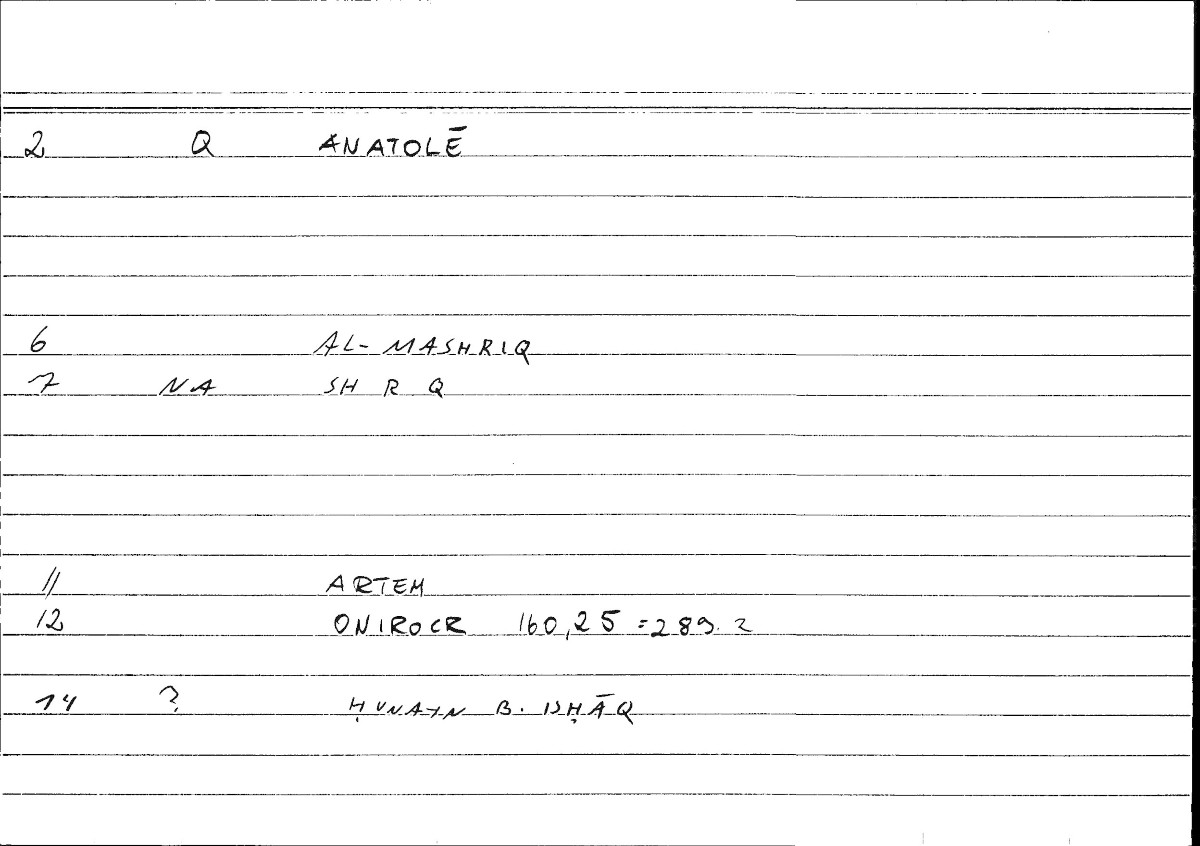 2 Q ANATOLĒ
6 AL-MASHRIQ
7 NA SH R Q
11 ARTEM
12 ONIROCR 160,25 = 289.2
14 ? ḤUNAYN B. ISḤĀQ